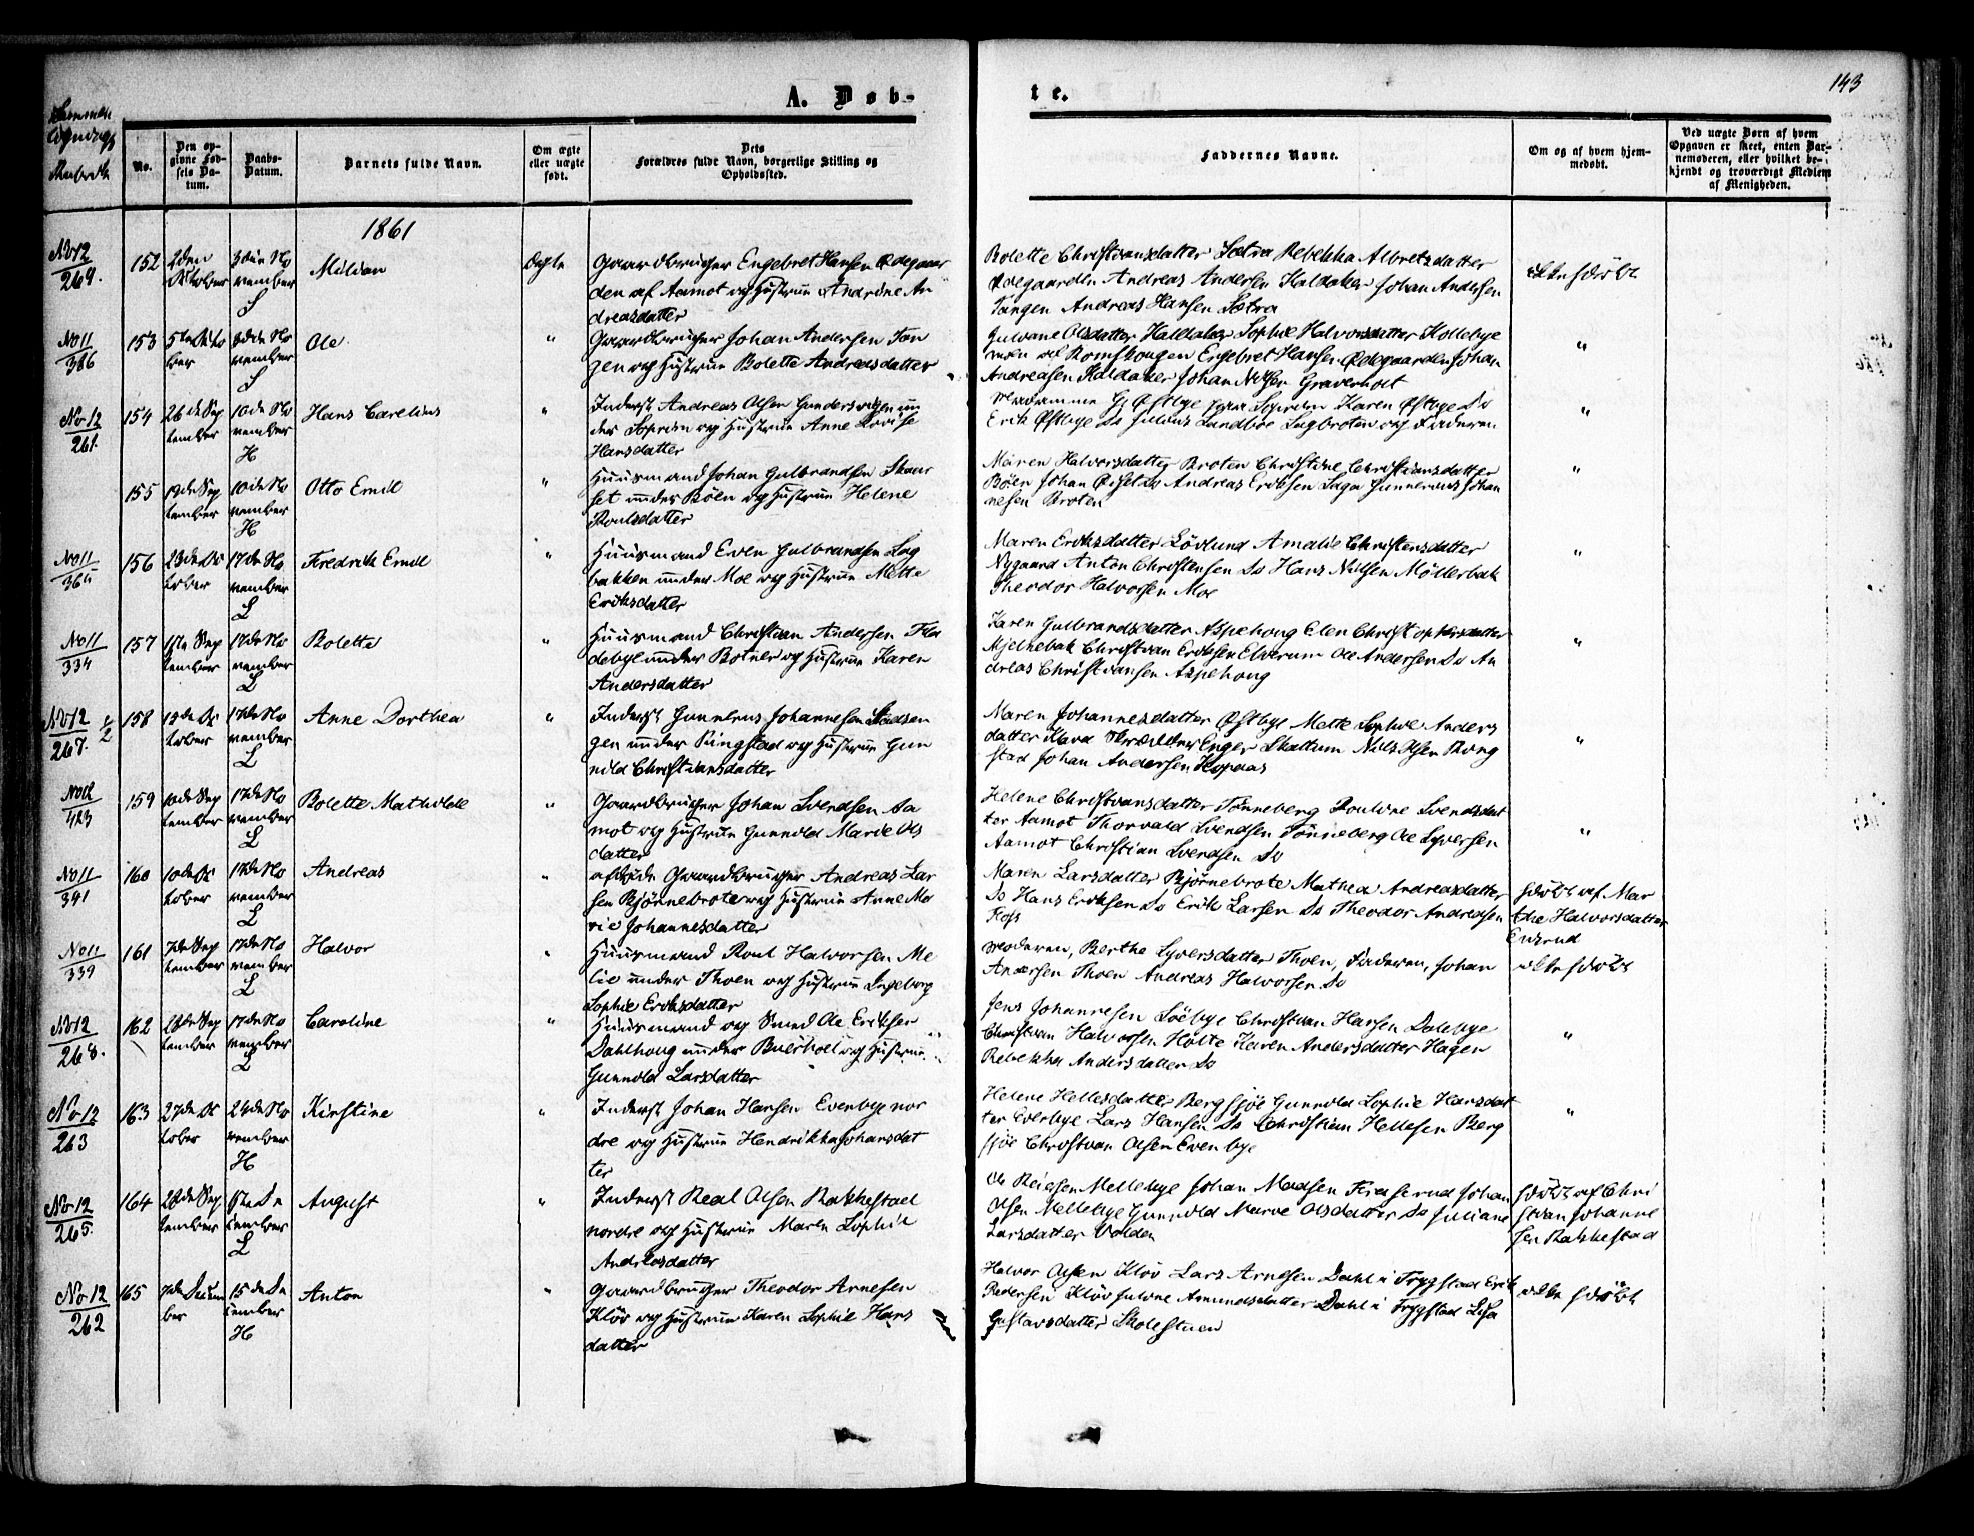 A. Døb-
te.
143
No.
Den op-
givne Fød-
sels Da-
tum.
Daabs-
Datum.
Barnets fulde Navn.
Om ægte
eller uægte
født.
Dets
Forældres fulde Navn, borgerlige Stilling og
Opholdssted.
Faddernes Navne.
Om og af hvem hjem-
medøbt.
Ved uægte Børn af hvem
Opgaven er skeet, enten Bar-
nemoderen, eller hvilket be-
kjendt og troværdigt Medlem
af Menigheden.
1861
No 12
269.
152
2den
October
3die No
vember
S
Milian
Ægte
Gaardbruger Engebret Hansen Ødegaar
den af Aamot og Hustrue Andrine An
dreasdatter
Bolette Christiansdatter Sætra Rebekka Albretsdatter
Ødegaarden Andreas Andersen Haldaker Johan Andersen
Tangen Andreas Hansen Sætra
ikke hjdøbt
No 11
386
153
5te Octo
ber
3die No
vember
S
Ole
"
Gaardbruger Johan Andersen Tan
gen og Hustrue Bolette Andreasdatter
Gulvane Olsdatter Haldaker Sophie Halvorsdatter Kollebye
moen af Romskougen Engebret Hansen Ødegaarden Johan
Andreasen Haldaker Johan Nilsen Graverholt
"
No 12
261.
154
26de Sep
tember
10de No
vember
H
Hans Carelius
"
Inderst Andreas Olsen Gundersengen un
der Soprim og Hustrue Anne Lovise
Hansdatter
Madamme G Østbye Karen Østbye Do
Erik Østbye Do Julius Sandboe Lugbroten og Faderen
"
155
19de Sep
tember
10de No
vember
H
Otto Emil
"
Huusmand Johan Gulbrandsen Skaur
set under Böen og Hustrue Helene
Poulsdatter
Maren Halvorsdatter Broten Christine Christiansdatter
Böen Johan Andreas Eriksen Saga Gunnerius Johan
nesen Broten
"
No 11
365
156
23de Oc
tober
17de No
vember
L
Fredrik Emil
"
Huusmand Even Gulbrandsen Lug
bakken under Moe og Hustrue Mette
Eriksdatter
Maren Eriksdatter Lövlund Amalie Christensdatter
Nygaard Anton Christensen Do Hans Nilsen Möllerbak
Theodor Halvorsen Moe
"
No 11
334
157
1ste Sep
tember
17de No
vember
L
Bolette
"
Huusmand Christian Andersen Fla
debye under Botner og Hustrue Karen
Andersdatter
Karen Gulbrandsdatter Aspehoug Elen Christophersdatter
Mjelkebak Christian Eriksen Elverum Ole Andersen Do An
dreas Christiansen Aspehoug
"
No 12
267.
158
15de Oc
tober
17de No
vember
L
Anne Dorthea
"
Inderst Gunerus Johannesen Stadsen
gen under Ringstad og Hustrue Gun
nild Christiansdatter
Maren Johannesdatter Østbye Mette Sophie Anders
datter Enger Skattum Nils Olsen Ring
stad Johan Andersen Kopaas
"
No 12
423
159
10de Sep
tember
17de No
vember
L
Bolette Mathilde
"
Gaardbruger Johan Svendsen Aa
mot og Hustrue Gunnild Marie Ols
datter
Helene Christiansdatter Tönneberg Pouline Svendsdat
ter Aamot Thorvald Svendsen Tönneberg Ole Syversen
Aamot Christian Svendsen Do
"
No 11
341
160
10de Oc
tober
17de No
vember
L
Andreas
"
afdøde Gaardbruger Andreas Lar
sen Bjönnebrote og Hustrue Anne Ma
rie Johannesdatter
Maren Larsdatter Bjönnebrote Mathea Andreasdatter
Do Hans Eriksen Do Erik Larsen Do Theodor Andreasen
Foss
hjdøbt af Mar
the Halvorsdatter
Enerud
No 11
339
161
7de Sep
tember
17de No
vember
L
Halvor
"
Huusmand Poul Halvorsen Me
lie under Thoen og Hustrue Ingeborg
Sophie Eriksdatter
Moderen, Berthe Syversdatter Thoen, Faderen, Johan
Andersen Thoen Andreas Halvorsen Do
ikke hjdøbt
No 12
268.
162
28de Sep
tember
17de No
vember
L
Caroline
"
Huusmand og Smed Ole Eriksen
Dahlhoug under Buerhol og Hustrue
Gunnild Larsdatter
Jens Johannesen Löebye Christian Hansen Dalebye
Christian Halvorsen Holte Karen Andersdatter Hagen
Rebekka Andersdatter Do
"
No 12
263
163
27de Oc
tober
24de No
vember
H
Kirstine
"
Inderst Johan Hansen Evenbye nor
dre og Hustrue Hendrikka Johansdat
ter
Helene Hellesdatter Bergsjöe Gunnild Sophie Hansdat
ter Evenbye Lars Hansen Do Christian Hellesen Berg
sjöe Christian Olsen Evenbye
"
No 12
265.
164
28de Sep
tember
1ste De
cember
L
August
"
Inderst Real Olsen Rakkestad
nordre og Hustrue Maren Sophie
Andreasdatter
Ole Reiersen Mellebye Johan Madsen Krosserud Johan
Olsen Mellebye Gunnild Marie Olsdatter Do Juliane
Larsdatter Volden
hjdøbt af Chri
stian Johanne
sen Rakkestad
No 12
262
165
7de Decem
ber
15de De
cember
H
Anton
"
Gaardbruger Theodor Arnesen
Klöv og Hustrue Karen Sophie Hans
datter
Halvor Olsen Klöv Lars Arnesen Dahl i Trygstad Erik
Pedersen Klöv Juline Amundsdatter Dahl i Trygstad Lisa
Gustavsdatter Skolestuen
ikke hjdøbt